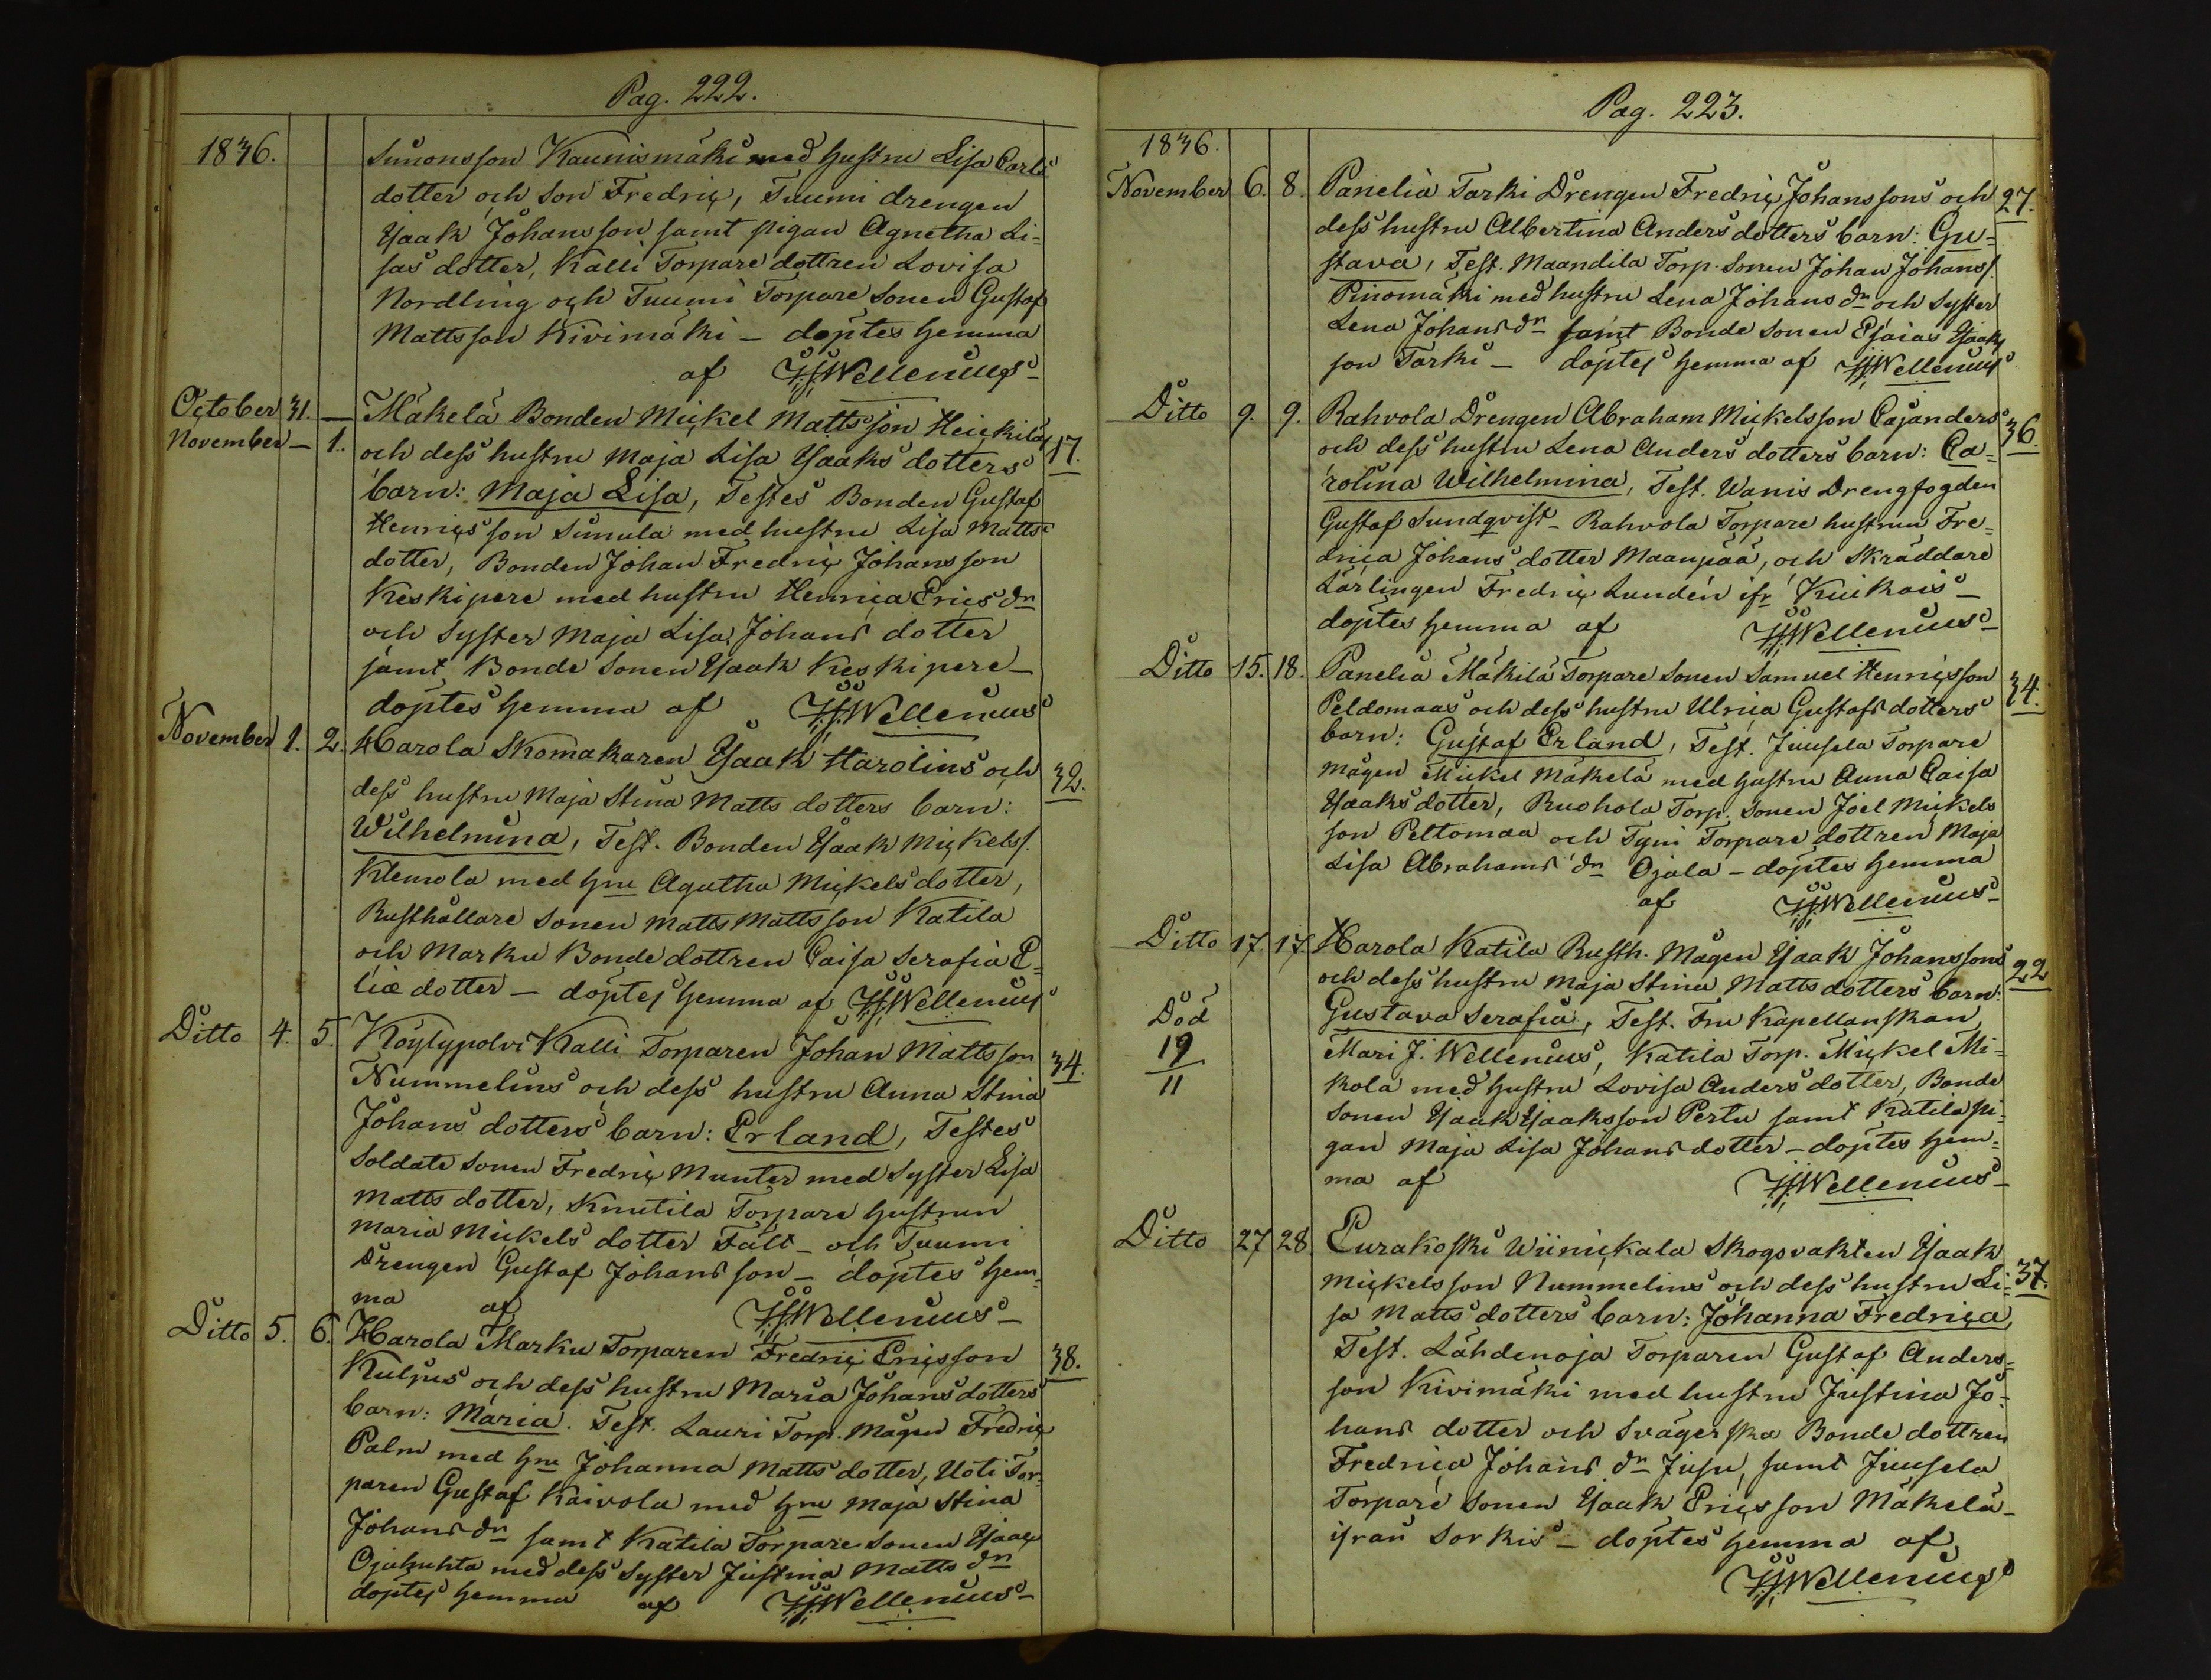 Pag. 222.
1836.
Simonsson Kaunismäki med hustru Lisa Carls
dotter och Son Fredric, Tuumi drengen
Isaak Johansson samt pigan Agnetha Li=
sas dotter, Kalli Torpare dottren Lovisa
Nordling och Tuumi Torpare Sonen Gustaf
Mattsson Kivimäki – döptes hemma
af Wellenius
October 31. –
November – 1. Mäkelä Bonden Mickel Mattsson Heickiläs 17.
och dess hustru Maja Lisa Isaaks dotters
barn: Maja Lisa, Testes Bonden Gustaf
Henricsson Simula med hustru Lisa Matts
dotter, Bonden Johan Fredric Johansson
Keskipere med hustru Henrica Erics dr
och Syster Maja Lisa Johans dotter
samt Bonde Sonen Isaak Keskipere –
döptes hemma af Wellenius
November 1. 2. Harola Skomakaren Isaak Harolins och 32.
dess hustru Maja Stina Matts dotters barn:
Wilhelmina, Test. Bonden Isaak Mickels/.
Klemola med hru Agatha Mickels dotter,
Rusthållare Sonen Matts Mattsson Katila
och Marku Bonde dottren Caisa Serafia E=
liæ dotter – döptes hemma af Wellenius
Ditto 4. 5. Köylypolvi Kalli Torparen Johan Mattsson 34.
Nummelins och dess hustru Anna Stina
Johans dotters barn: Erland, Testes
Soldate Sonen Fredric Munter med Syster Lisa
Matts dotter, Knutila Torpare hustrun
Maria Mickels dotter Fält – och Tuumi
Drengen Gustaf Johansson – döptes hem=
ma af Wellenius –
Ditto 5. 6. Harola Marku Torparen Fredric Ericsson 38.
Kuljus och dess hustru Maria Johans dotters
barn: Maria. Test. Lauri Torp. Mågen Fredric
Palm med hru Johanna Matts dotter, Uoti Tor-
paren Gustaf Kaivola med hru Maja Stina
Johans dr samt Katila Torpare Sonen Isaac
Ojakuhta med dess Syster Justina Matts dr
döptes hemma af Wellenius –
Pag. 223.
1836.
November 6. 8. Panelia Tarki Drengen Fredric Johanssons och 27.
dess hustru Albertina Anders dotters barn: Gu=
stava, Test. Maandila Torp. Sonen Johan Johans/.
Pinomäki med hustru Lena Johans dr och Syster
Lena Johans dr samt Bonde Sonen Esaias Isaaks
son Tarki – döptes hemma af Wellenius
Ditto 9. 9. Rahvola Drengen Abraham Mickelsson Cajanders 36.
och dess hustru Lena Anders dotters barn: Ca=
rolina Wilhelmina, Test. Wanis Drengfogden
Gustaf Sundqvist – Rahvola Torpare hustrun Fre=
drica Johans dotter Maanpää, och Skräddare
Lärlingen Fredric Lundén ifr Kiukais –
döptes hemma af Wellenius –
Ditto 15. 18. Panelia Mäkilä Torpare Sonen Samuel Henricsson 34.
Peldomaas och dess hustru Ulrica Gustafs dotters
barn: Gustaf Erland, Test. Juusela Torpare
Mågen Mickel Mäkelä med hustru Anna Caisa
Isaaks dotter, Ruohola Torp. Sonen Joel Mickels
son Peltomaa och Tyni Torpare dottren Maja
Lisa Abrahams dr Ojala – döptes hemma
af Wellenius –
Ditto 17. 17. Harola Katila Rusth. Mågen Isaak Johanssons 22
och dess hustru Maja Stina Matts dotters barn:
Död
19
11
Gustava Serafia, Test. Fru Kapellanskan
Mari J. Wellenius, Katila Torp. Mickel Mi=
kola med hustru Lovisa Anders dotter, Bonde
Sonen Isaak Isaaksson Pertu samt Katila pi=
gan Maja Lisa Johans dotter – döptes hem=
ma af Wellenius –
Ditto 27 28 Eurakoski Wiinickala Skogsvakten Isaak 37.
Mickelsson Nummelins och dess hustru Li=
sa Matts dotters barn: Johanna Fredrica,
Test. Lähdenoja Torparen Gustaf Anders=
son Kivimäki med hustru Justina Jo=
hans dotter och Svägerska Bonde dottren
Fredrica Johans dr Jusu, samt Juusela
Torpare Sonen Isaak Ericsson Mäkelä –
ifrån Sorkis – döptes hemma af
Wellenius